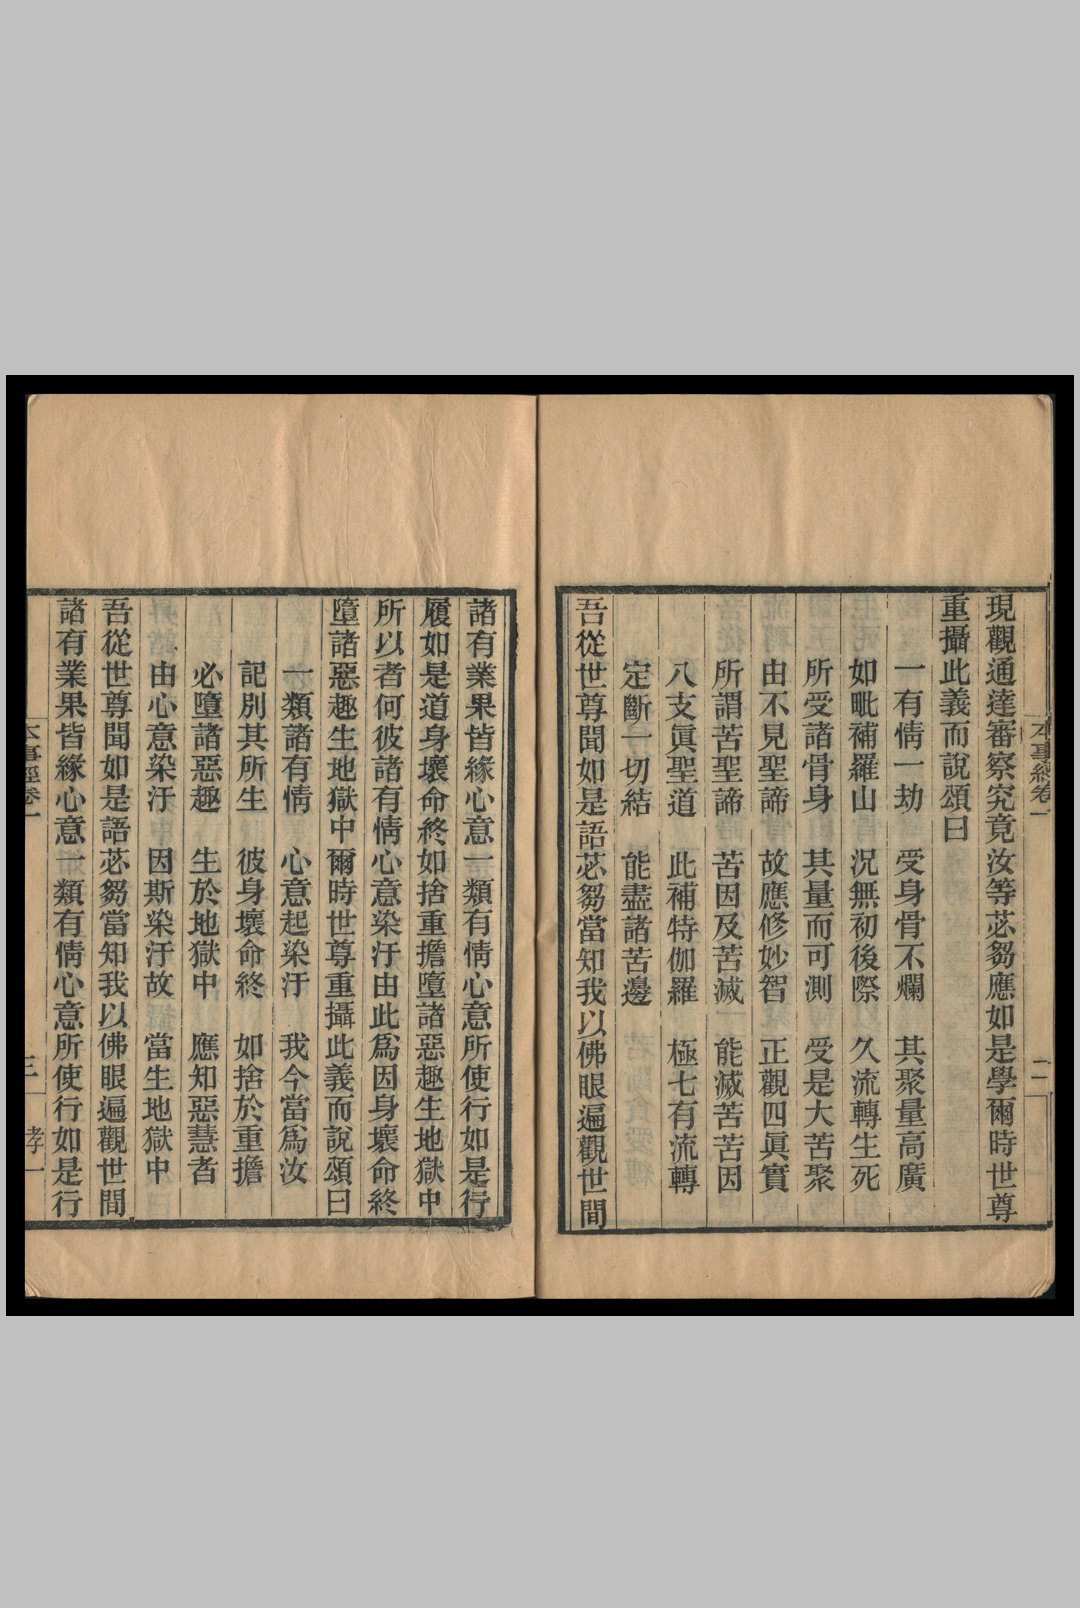 本事經卷一
二
現觀通達審察究竟汝等苾芻應如是學爾時世尊
重攝此義而說頌曰
一有情一劫　受身骨不爛　其聚量高廣
如毗補羅山　況無初後際　久流轉生死
所受諸骨身　其量而可測　受是大苦聚
由不見聖諦　故應修妙智　正觀四眞實
所謂苦聖諦　苦因及苦滅　能滅苦苦因
八支眞聖道　此補特伽羅　極七有流轉
定斷一切結　能盡諸苦邊
吾從世尊聞如是語苾芻當知我以佛眼遍觀世間
諸有業果皆緣心意一類有情心意所使行如是行
履如是道身壞命終如捨重擔墮諸惡趣生地獄中
所以者何彼諸有情心意染汙由此爲因身壞命終
墮諸惡趣生地獄中爾時世尊重攝此義而說頌曰
一類諸有情　心意起染汙　我今當爲汝
記別其所生　彼身壞命終　如捨於重擔
必墮諸惡趣　生於地獄中　應知惡慧者
由心意染汙　因斯染汙故　當生地獄中
吾從世尊聞如是語苾芻當知我以佛眼遍觀世間
諸有業果皆緣心意一類有情心意所使行如是行
本事經卷一
三
孝一